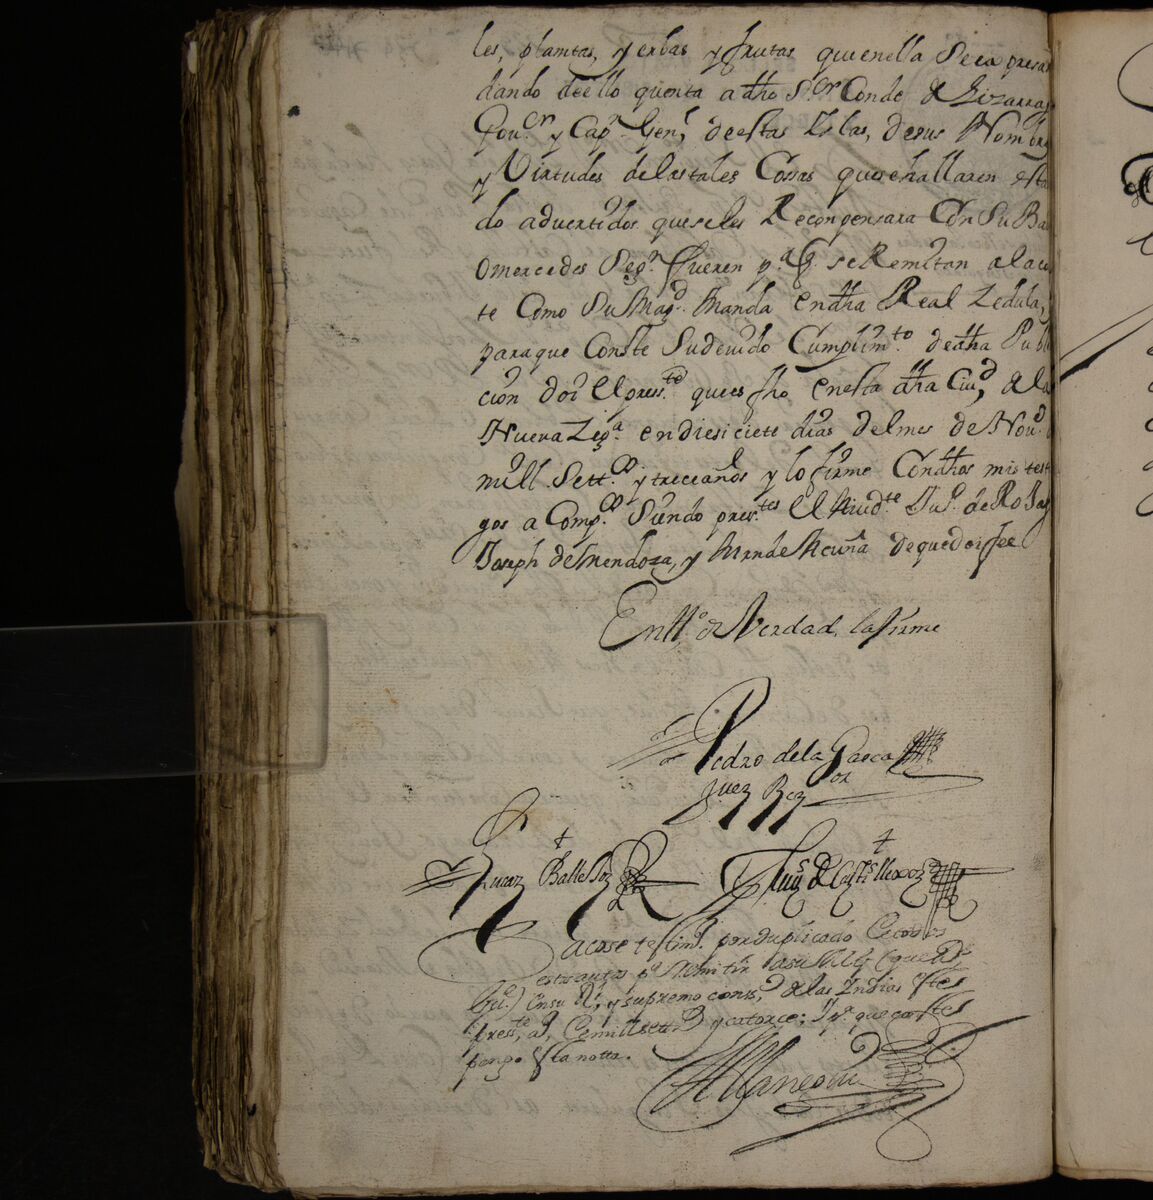 les, plantas, yerbas y frutas quienella Se ex presa
dando deello quenta adho S.or Conde de Lizarra
Gou.or y Cap.n Gen.l de estas Islas, desus Nombre
y Virtudes delastales Cossas quesehallaren esta
do aduertidos queseles Reconpensara Con Su
omercedes Seg.n fueren p.a q. se Remitan ala
te Como Su Mag.d Manda endha Real Zedula,
para que Conste Sudeuido Cumplim.to dedha Publi
cion doi el pres.te que es fho enesta dha Ciu.d de la
Nueua Zeg.a endiesisiete dias delmes de Nou.e
mill Sett.os y treceaños y lo firme Condhos mis test
gos a Comp.dos Siendo pres.tes El Aiud.te Ju.o de Rojas
Joseph deMendoza, y Acuña dequedoi fee
En tt.o de Verdad lo firme
Pedro dela Gasca
Juez Rez.or
Lucas Ballesteros
Luis de Castill
Sacose testim.o por duplicado Cecotos
estos autos p.a Remitir asu Mag. (que Ds
gu.e) en su R.l y supremo cons.o de las Indias este
pres.te a.o de mil sett.s y catorce; y p.a que conste
pongo esta notta.